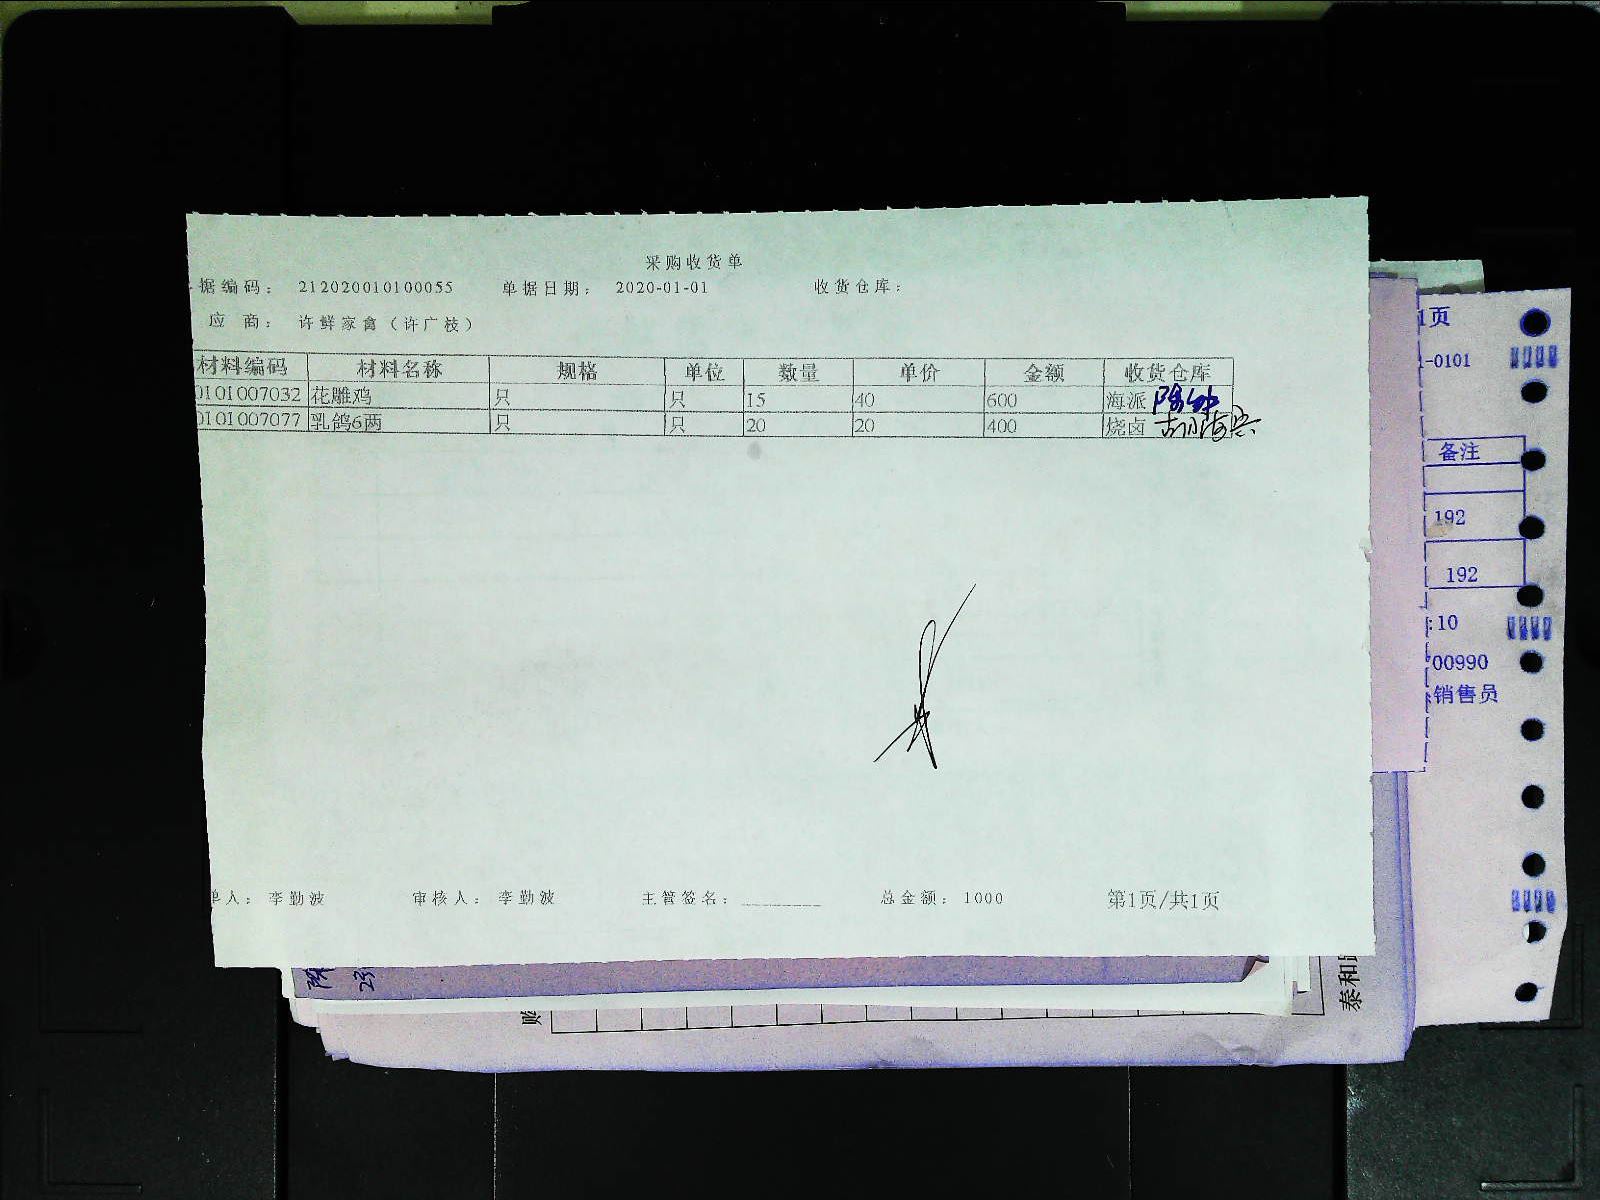 采购收货单
据编码： 212020010100055 单据日期： 2020-01-01 收货仓库：
应 商： 许鲜家禽（许广枝）
材料编码 材料名称 规格 单位 数量 单价 金额 收货仓库
0101007032 花雕鸡 只 只 15 40 600 海派
0101007077 乳鸽6两 只 只 20 20 400 烧卤
单人： 李勤波 审核人： 李勤波 主管签名： 总金额： 1000 第1页/共1页
1页
-0101
备注
192
192
:10
00990
销售员
23
泰和